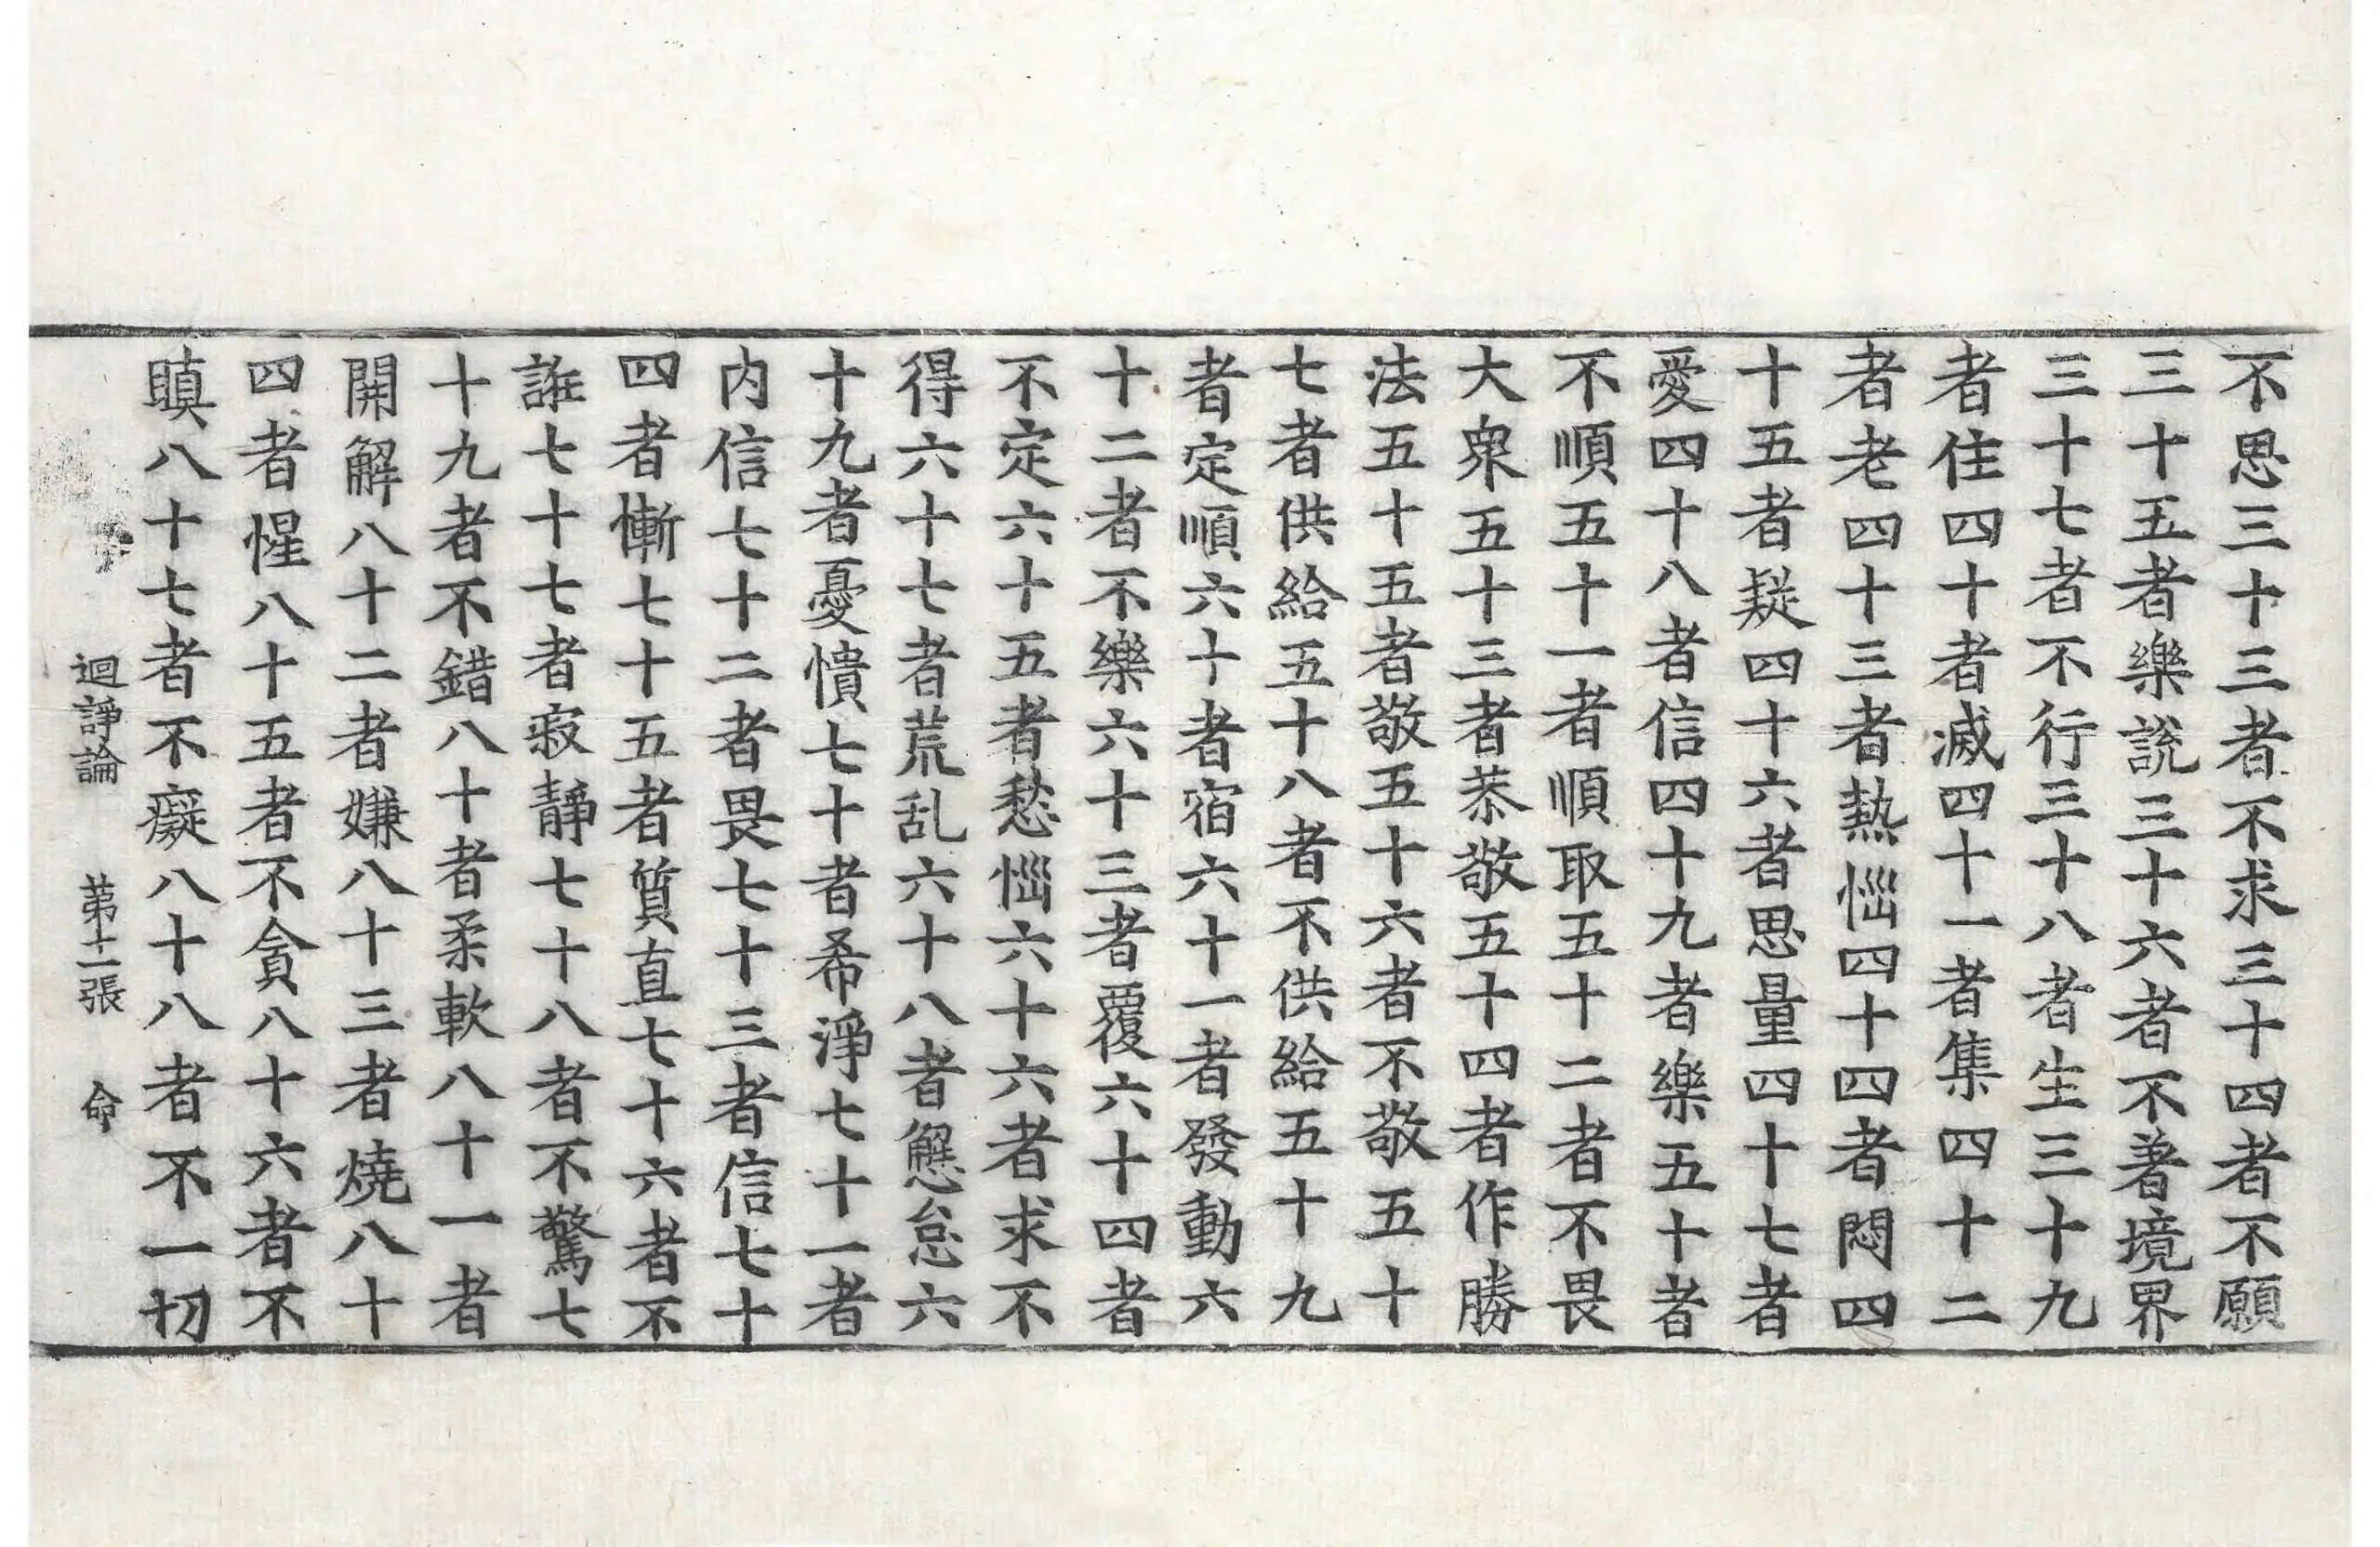 不思三十三者不求三十四者不願
三十五者樂說三十六者不著境界
三十七者不行三十八者生三十九
者住四十者滅四十一者集四十二
者老四十三者熱惱四十四者悶四
十五者疑四十六者思量四十七者
愛四十八者信四十九者樂五十者
不順五十一者順取五十二者不畏
大衆五十三者恭敬五十四者作勝
法五十五者敬五十六者不敬五十
七者供給五十八者不供給五十九
者定順六十者宿六十一者發動六
十二者不樂六十三者覆六十四者
不定六十五者愁惱六十六者求不
得六十七者荒乱六十八者懈怠六
十九者憂憒七十者希淨七十一者
内信七十二者畏七十三者信七十
四者慚七十五者質直七十六者不
誑七十七者寂靜七十八者不驚七
十九者不錯八十者柔軟八十一者
開解八十二者嫌八十三者燒八十
四者惺八十五者不貪八十六者不
瞋八十七者不癡八十八者不一切
迴諍論 苐十二張 命